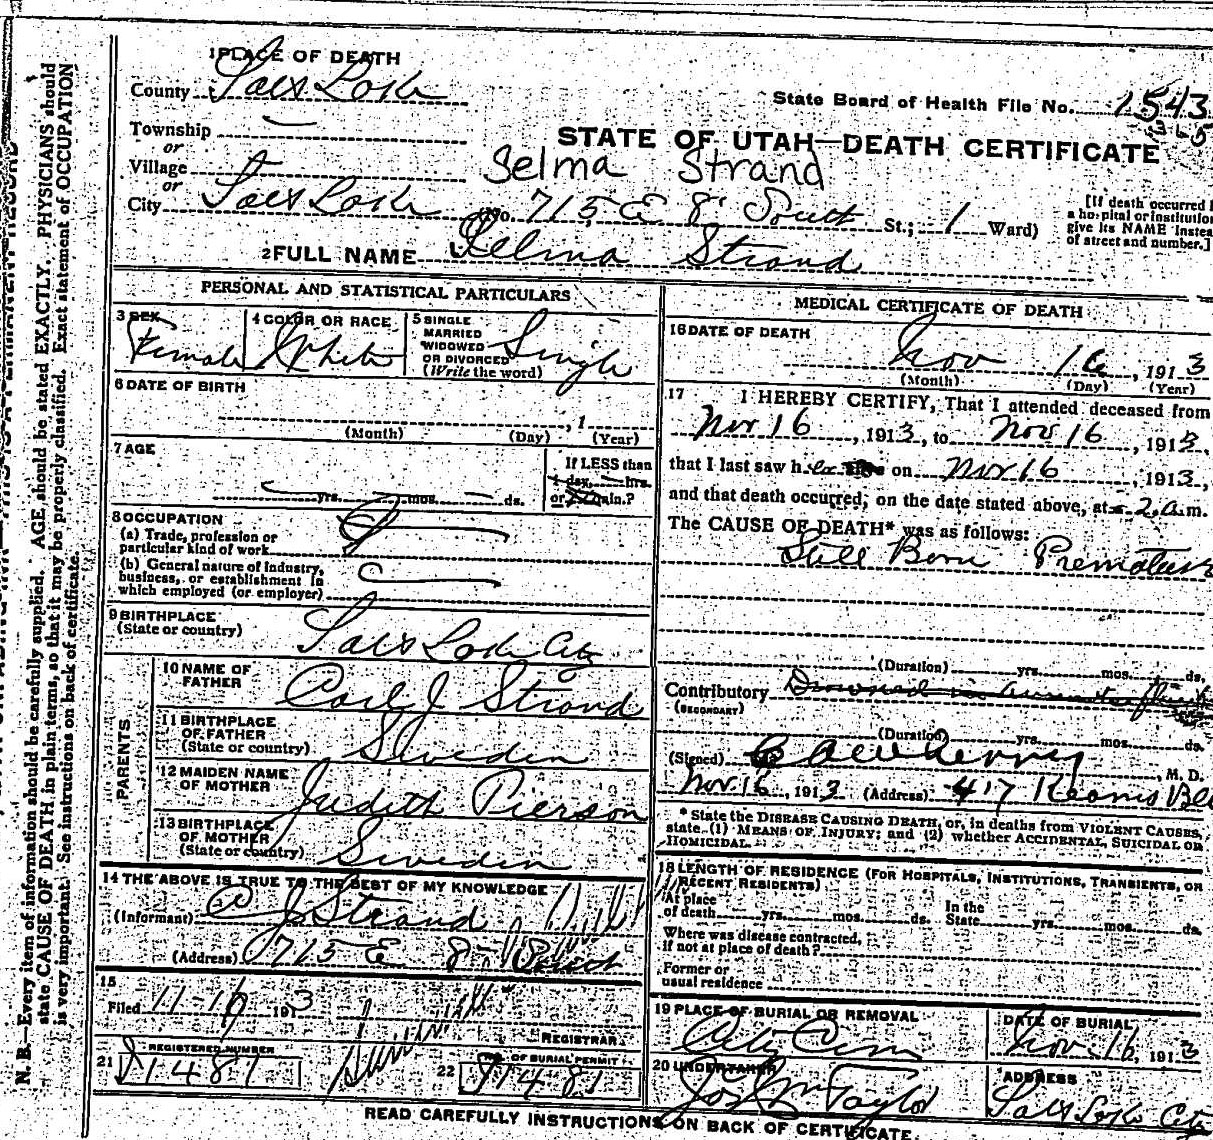 1 PLACE OF DEATH
County Salt Lake
State Board of Health File No. 1543
Township
or
STATE OF UTAH—DEATH CERTIFICATE
Village
Selma Strand
or
City Salt Lake No. 715 E 8 South St.; 1 Ward)
[If death occurred i
a hospital or institution
give its NAME instea
of street and number.]
2 FULL NAME Selma Strand
PERSONAL AND STATISTICAL PARTICULARS
3 SEX Female
4 COLOR OR RACE White
5 SINGLE
MARRIED
WIDOWED
OR DIVORCED
(Write the word) Single
6 DATE OF BIRTH
, 1
(Month) (Day) (Year)
7 AGE
yrs. mos. ds.
If LESS than
1 day, hrs.
or min.?
8 OCCUPATION
(a) Trade, profession or
particular kind of work
(b) General nature of Industry,
business, or establishment in
which employed (or employer)
9 BIRTHPLACE
(State or country) Salt Lake City
PARENTS
10 NAME OF
FATHER Carl J Strand
11 BIRTHPLACE
OF FATHER
(State or country) Sweden
12 MAIDEN NAME
OF MOTHER Judith Pierson
13 BIRTHPLACE
OF MOTHER
(State or country) Sweden
14 THE ABOVE IS TRUE TO THE BEST OF MY KNOWLEDGE
(Informant) C J Strand
(Address) 715 E 8 South
15
Filed 11-16 1913
REGISTRAR
21 REGISTERED NUMBER
S1481
22 NO. OF BURIAL PERMIT
S1481
MEDICAL CERTIFICATE OF DEATH
16 DATE OF DEATH
Nov 16, 1913
(Month) (Day) (Year)
17 I HEREBY CERTIFY, That I attended deceased from
Nov 16, 1913, to Nov 16, 1913,
that I last saw her on Nov 16, 1913,
and that death occurred, on the date stated above, at 2 a.m.
The CAUSE OF DEATH* was as follows:
Still Born Premature
(Duration) yrs. mos. ds.
Contributory
(SECONDARY)
(Duration) yrs. mos. ds.
(Signed) , M. D.
Nov. 16, 1913 (Address) 417 Kearns Bld
* State the DISEASE CAUSING DEATH, or, in deaths from VIOLENT CAUSES,
state (1) MEANS OF INJURY; and (2) whether ACCIDENTAL, SUICIDAL OR
HOMICIDAL.
18 LENGTH OF RESIDENCE (FOR HOSPITALS, INSTITUTIONS, TRANSIENTS, OR
RECENT RESIDENTS)
At place
of death yrs. mos. ds. In the
State yrs. mos. ds.
Where was disease contracted,
if not at place of death?
Former or
usual residence
19 PLACE OF BURIAL OR REMOVAL
City Cem
DATE OF BURIAL
Nov. 16, 1913
20 UNDERTAKER
Jos Wm Taylor
ADDRESS
Salt Lake City
READ CAREFULLY INSTRUCTIONS ON BACK OF CERTIFICATE.
N. B.—Every item of information should be carefully supplied. AGE should be stated EXACTLY. PHYSICIANS should
state CAUSE OF DEATH in plain terms, so that it may be properly classified. Exact statement of OCCUPATION
is very important. See instructions on back of certificate.